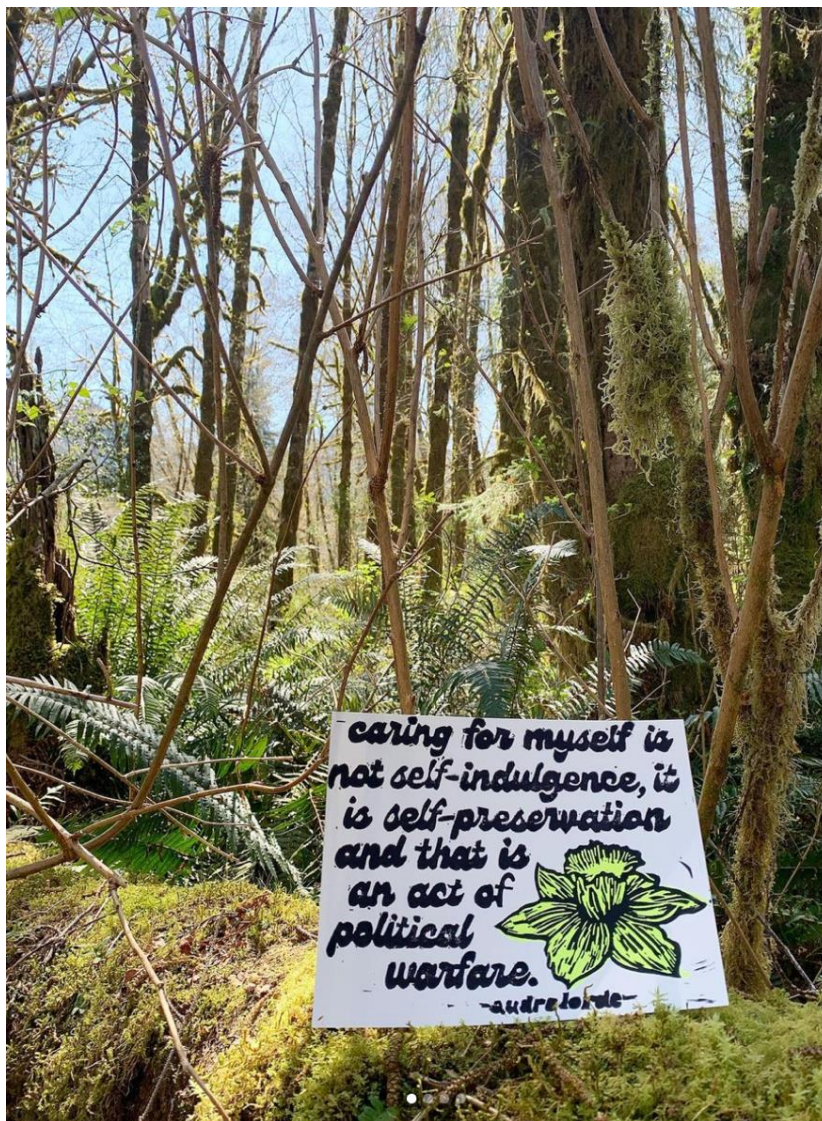 caring for myself is
not self-indulgence, it
is self-preservation
and that is
an act of
political
warfare.
-audre lorde-